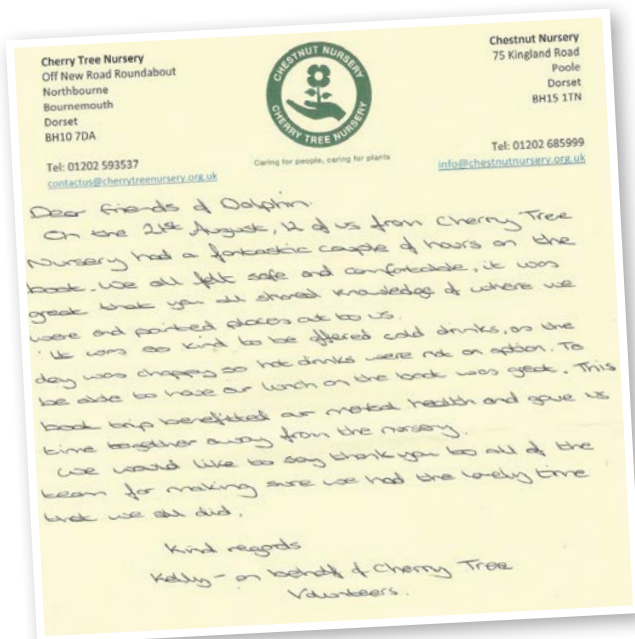 Cherry Tree Nursery
Off New Road Roundabout
Northbourne
Bournemouth
Dorset
BH10 7DA
Tel: 01202 593537
contactus@cherrytreenursery.org.uk
CHESTNUT NURSERY
CHERRY TREE NURSERY
Caring for people, caring for plants
Chestnut Nursery
75 Kingland Road
Poole
Dorset
BH15 1TN
Tel: 01202 685999
info@chestnutnursery.org.uk
Dear friends of Dolphin.
On the 21st August, 12 of us from Cherry Tree
Nursery had a fantastic couple of hours on the
boat. We all felt safe and comfortable, it was
great that you all shared knowledge of where we
were and pointed places out to us.
It was so kind to be offered cold drinks, as the
day was choppy so hot drinks were not an option. To
be able to have our lunch on the boat was great. This
boat trip benefitted our mental health and gave us
time together away from the nursery.
We would like to say thank you to all of the
team for making sure we had the lovely time
that we all did.
Kind regards
Kelly - on behalf of Cherry Tree
Volunteers.